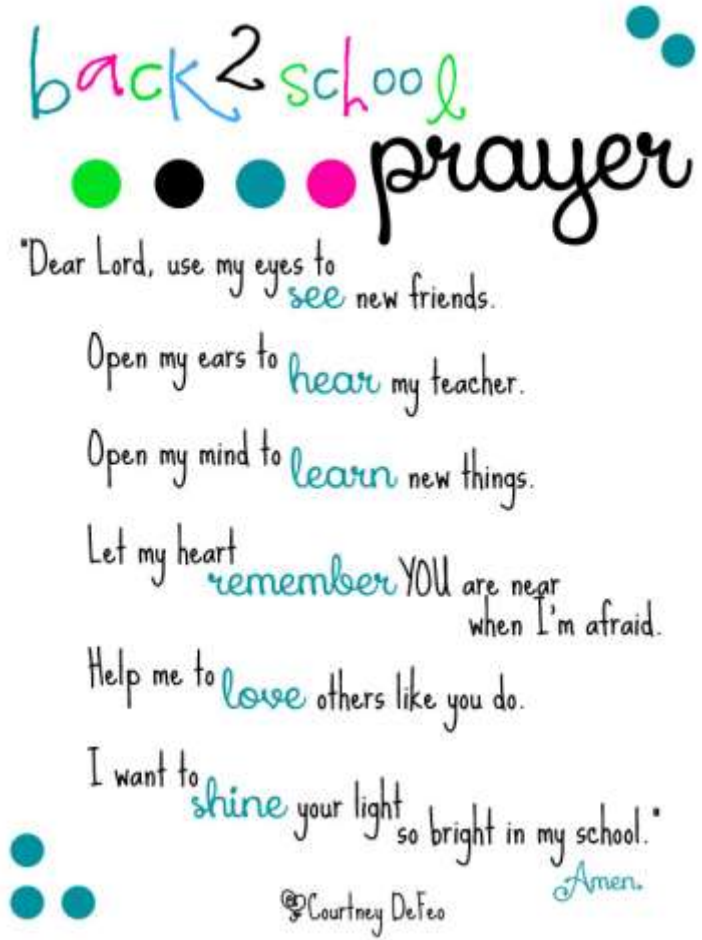 back 2 school
prayer
"Dear Lord, use my eyes to
see new friends.
Open my ears to
hear my teacher.
Open my mind to
learn new things.
Let my heart
remember YOU are near
when I'm afraid.
Help me to
love others like you do.
I want to
shine your light
so bright in my school."
Amen.
@Courtney DeFeo